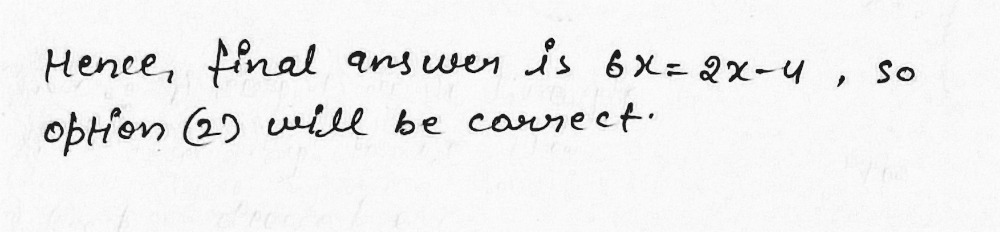 Hence, final answer is 6x=2x-4, so
option (2) will be correct.